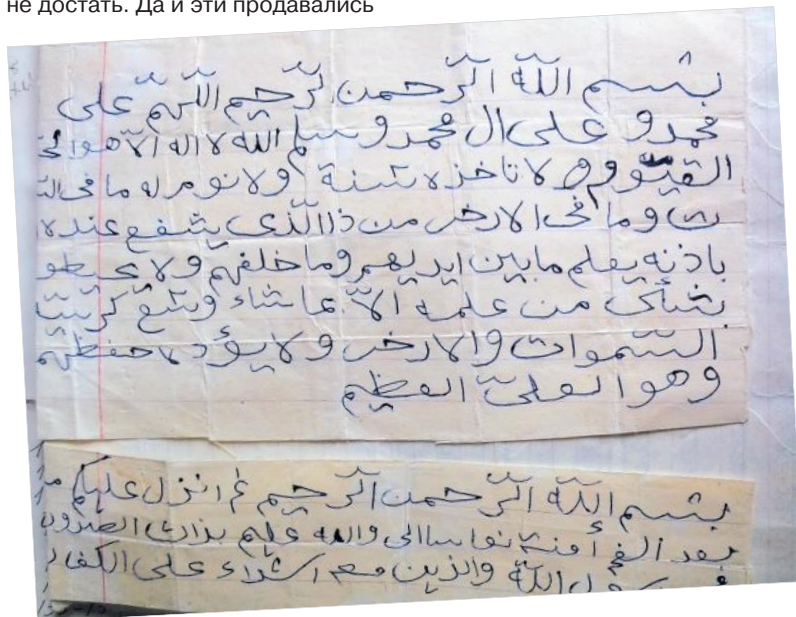 не достать. Да и эти продавались
بسم اللّه الرّحمن الرّحيم اللّهمّ على
محمد و على ال محمد و سلم اللّه لا اله الّا هو الحـ
القيّوم لا تاخذه سنة ولا نوم له ما فى الـ
ت وما فى الارض من ذا الّذى يشفع عنده
باذنه يعلم ما بين ايديهم وما خلفهم ولا يحيطو
بشئ من علمه الّا بما شاء وسع كرسيـ
السّموات والارض ولا يؤده حفظهم
وهو العلىّ العظيم
بسم اللّه الرّحمن الرّحيم ثم انزل عليكم مـ
بعد الغم أمنة نعاسا الى واللّه عليم بذات الصدور
اللّه والذين معه اشداء على الكفار